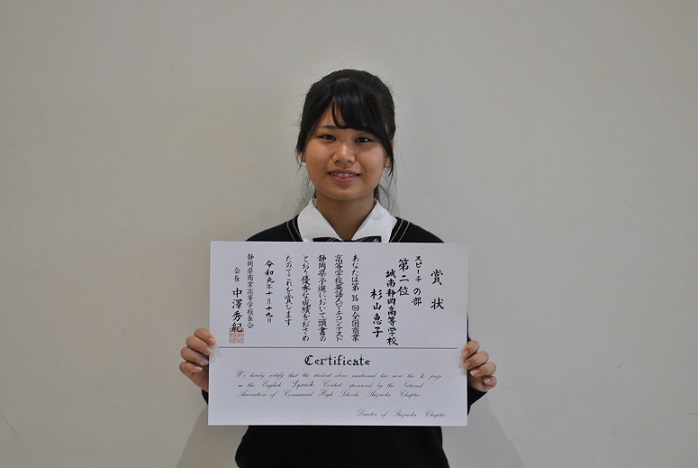 賞状
スピーチの部
第二位
城南静岡高等学校
杉山恵子
あなたは第36回全国商業
高等学校英語スピーチコンテスト
静岡県予選において頭書の
とおり優秀な成績をおさめ
たのでこれを賞します
令和元年十月十九日
静岡県商業高等学校長会
会長 中澤秀紀
Certificate
We hereby certify that the student above mentioned has won the 2. prize
in the English Speech Contest sponsored by the National
Association of Commercial High Schools Shizuoka Chapter.
Director of Shizuoka Chapter